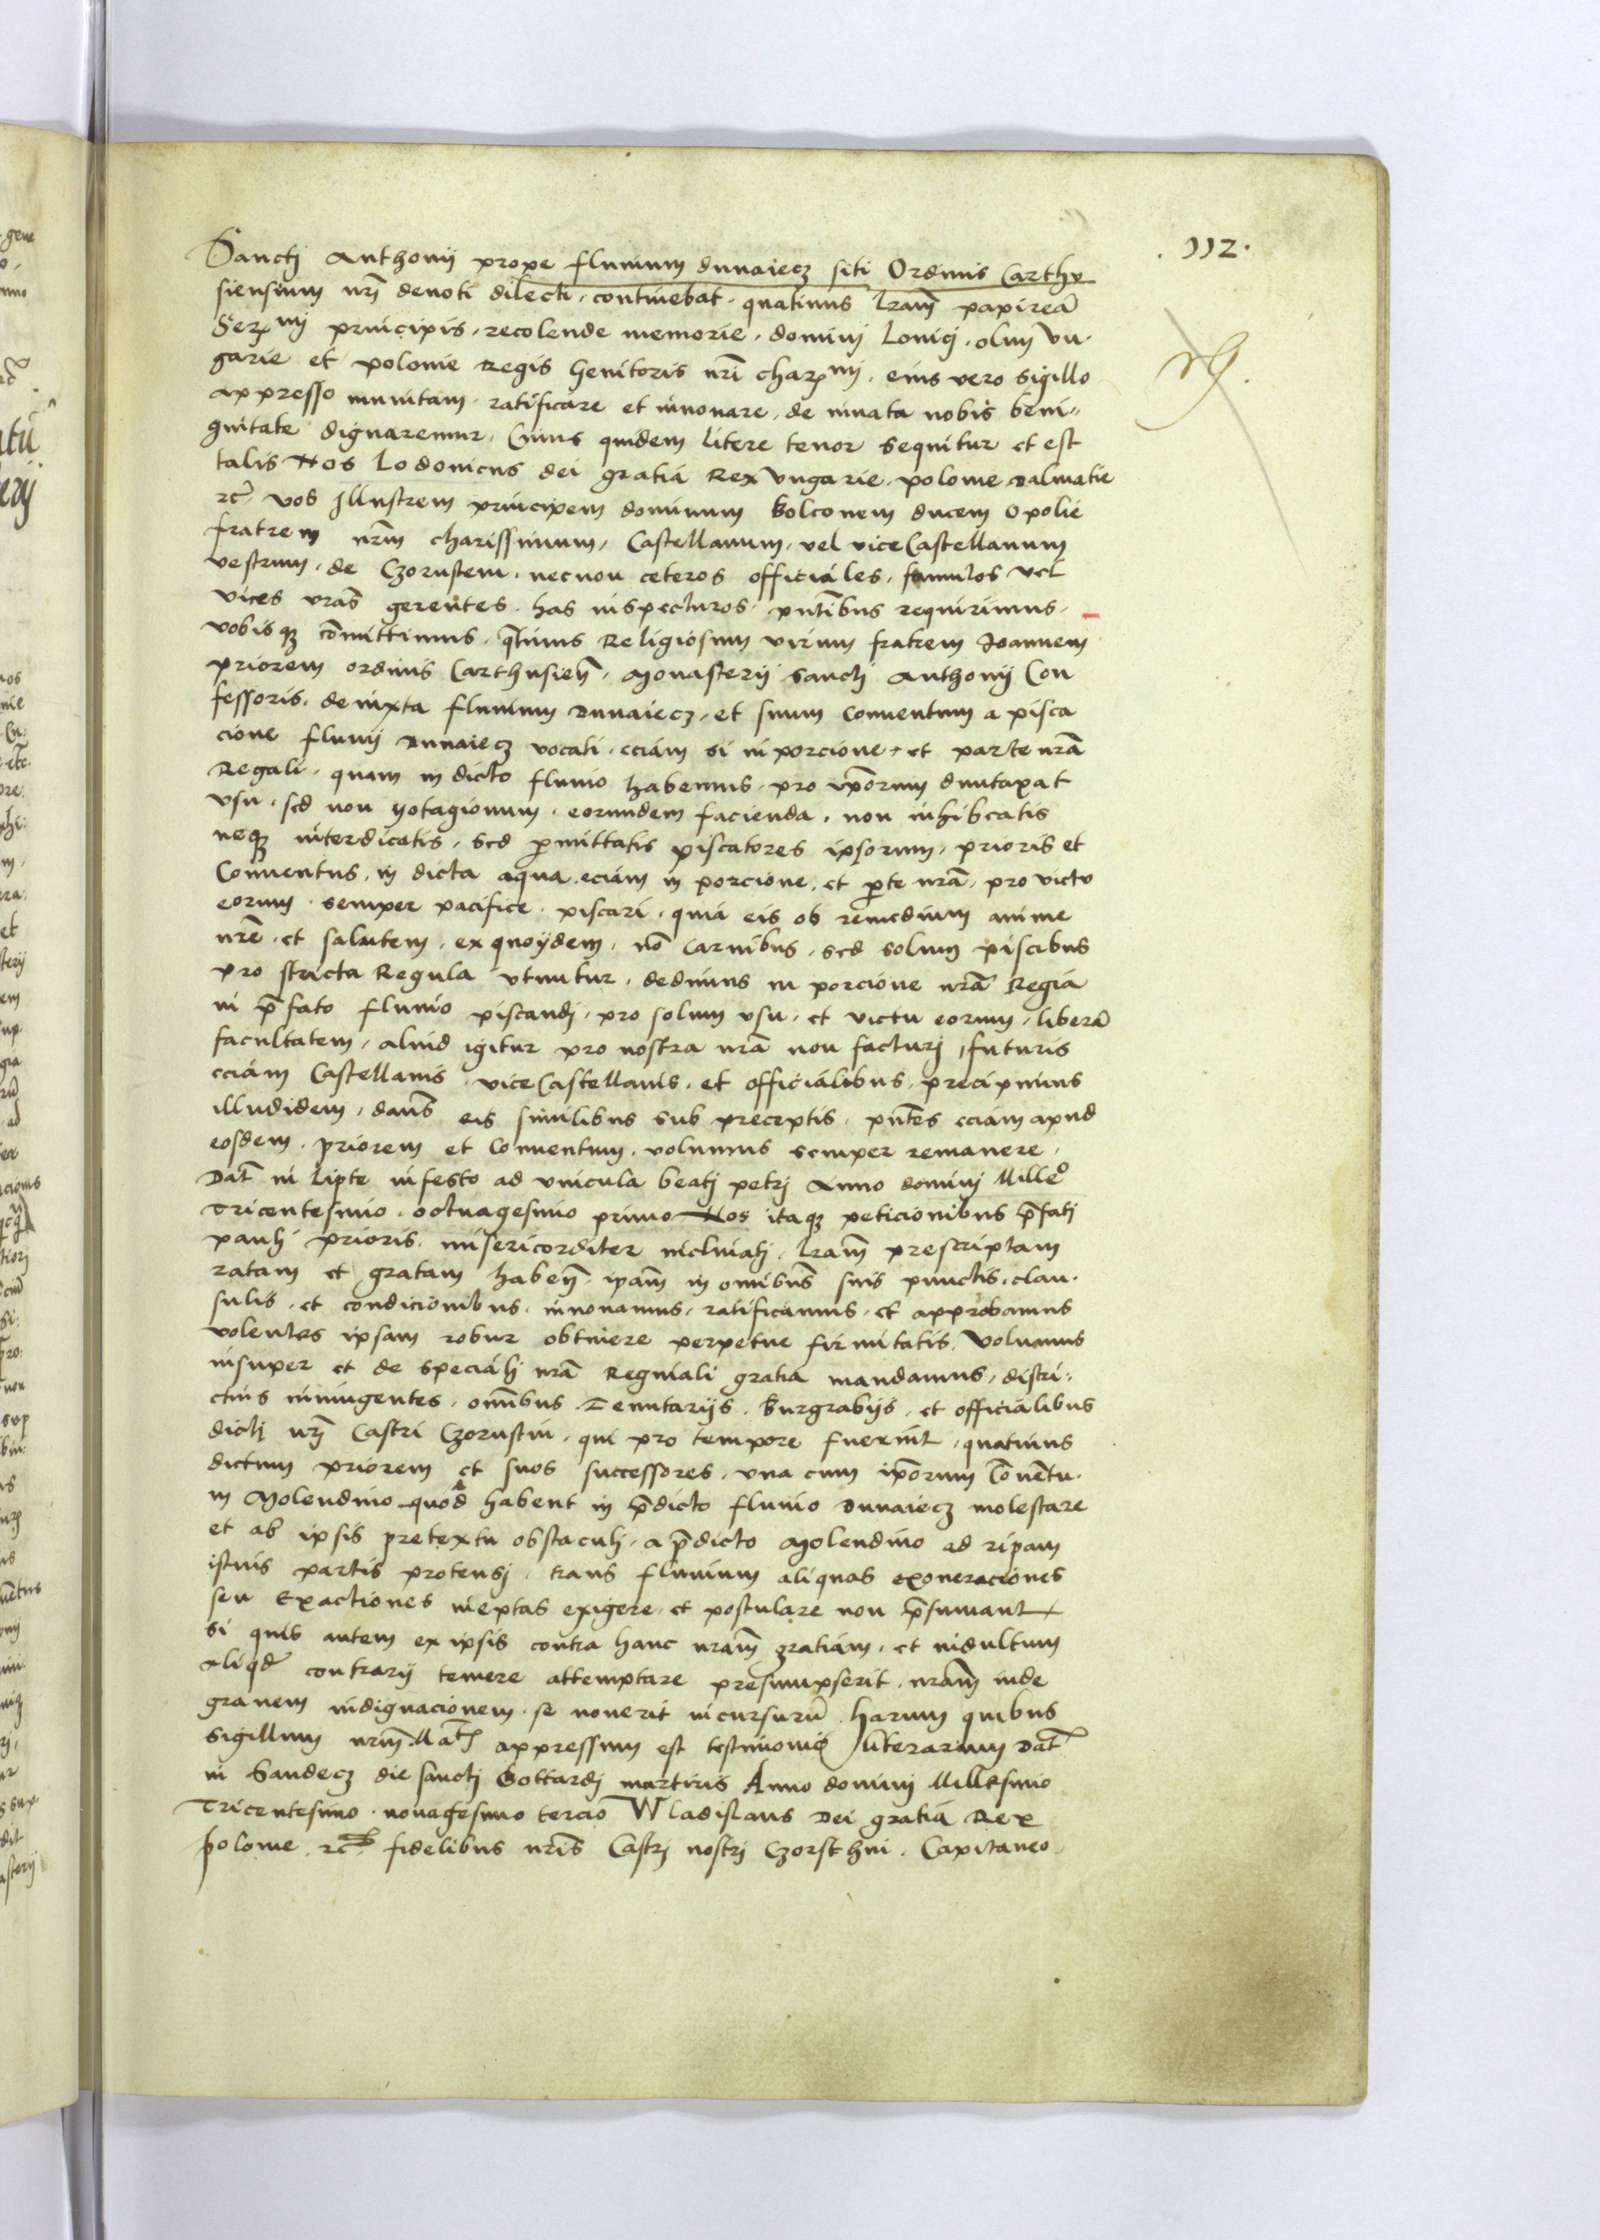 112.
Sanctj Anthonij prope fluuium dunaiecz siti Ordinis Carthu
siensium nrj deuoti dilecti, continebat, quatinus lram papirea
Serꝫmj principis, recolende memorie, dominj Louicj, olim Vn
garie et polonie Regis Genitoris nri charꝫmj, eius vero sigillo
appresso munitam, ratificare et innouare, de innata nobis beni
gnitate dignaremur, Cuius quidem litere tenor sequitur et est
talis Nos Lodouicus dei gratia Rex Vngarie, polonie Dalmatie
rc vos Illustrem principem dominum Bolconem ducem Opolie
fratrem nrm charissimum, Castellanum, vel viceCastellanum
vestrum, de Czorusten, necnon ceteros officiales, famulos vel
vices vras gerentes, has inspecturos, pntibus requirimus,
vobisqꝫ comittimus, qtinus Religiosum virum fratrem Joannem
priorem ordinis Carthusien, Monasterij sanctj Anthonij Con
fessoris, de iuxta fluuium Dunaiecz, et suum Conuentum a pisca
cione fluuij Dunaiecz vocati, eciam si in porcione, et parte nra
Regali, quam in dicto fluuio habemus, pro ipsorum duntaxat
vsu, sed non, eorumdem facienda, non inhibeatis
neqꝫ interdicatis, sed pmittatis piscatores ipsorum, prioris et
Conuentus, in dicta aqua eciam in porcione, et pte nra, pro victu
eorum, semper pacifice, piscari, quia eis ob remedium anime
nre, et salutem, ex quoydem, no carnibus, sed solum piscibus
pro stricta Regula vtuntur, dedimus in porcione nra Regia
in pfato fluuio piscandj, pro solum vsu, et victu eorum, libera
facultatem, aliud igitur pro nostra nra non facturj, futuris
eciam Castellanis, viceCastellanis, et officialibus, precipimus
illudidem, dans eis similibus sub preceptis, pntes eciam apud
eosdem, priorem et Conuentum, volumus semper remanere,
Dat in Lipte in festo ad vincula beatj petrj Anno dominj Milleo
Tricentesimo, octuagesimo primo Nos itaqꝫ peticionibus pfatj
paulj prioris, misericorditer inclinatj, lram prescriptam
ratam et gratam haben, ipam in omibus suis punctis, clau
sulis, et condicionibus, innouamus, ratificamus, et approbamus
volentes ipsam robur obtinere perpetue firmitatis, Volumus
insuper et de specialj nra Reginali gratia mandamus, distri
ctius iniungentes, omibus Tenutarijs, Burgrabijs, et officialibus
dictj nrj Castri Czorustin, qui pro tempore fuerint, quatinus
dictum priorem et suos successores, vna cum ipsorum Conuetu,
in Molendino quod habent in pdicto fluuio Dunaiecz molestare
et ab ipsis pretextu obstaculj, a pdicto Molendino ad ripam
istius partis protensj, trans fluuium aliquas exoneraciones
seu Exactiones ineptas exigere, et postulare non psumant
si quis autem ex ipsis contra hanc nram gratiam, et indultum
aliqd contrarij temere attemptare presumpserit, nram inde
grauem indignacionem, se nouerit incursuru, harum quibus
sigillum nrm Mats appressum est testimonio literarum Dat
in Sandecz die sanctj Gottardj martiris Anno dominj Millesimo
Tricentesimo, nonagesimo tercio Wladislaus Dei gratia Rex
polonie, rc fidelibus nris Castrj nostrj Czorsthni, Capitaneo